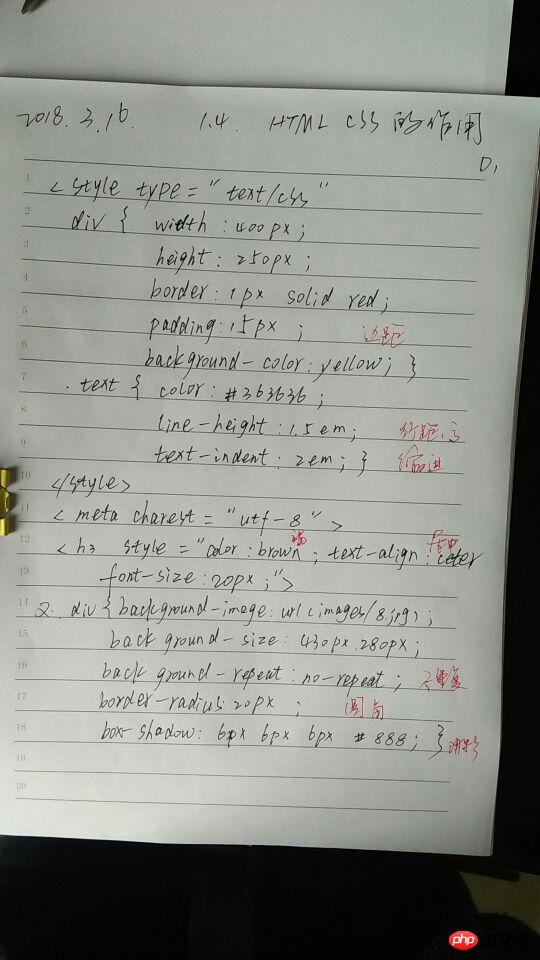 2018.3.16. 1.4. HTML CSS 的作用
D1
1 <style type="text/css"
2 div { width:400px;
3 height:250px;
4 border:1px solid red;
5 padding:15px; 边距
6 background-color:yellow; }
7 .text { color:#363636;
8 line-height:1.5em; 行距
9 text-indent:2em; } 缩进
10 </style>
11 <meta charest="utf-8">
12 <h3 style="color:brown; text-align:ceter 居中
13 font-size:20px;">
14 2. div{background-image:url(images/8.jpg);
15 background-size:430px 280px;
16 background-repeat:no-repeat; 不重复
17 border-radius:20px; 圆角
18 box-shadow: 6px 6px 6px #888; } 阴影
19
20
php